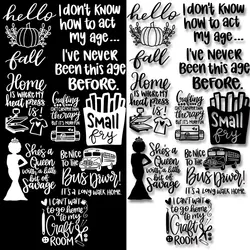 hello
fall
I don't know
how to act
my age...
I've never
Been this age
Before.
Home
is where my
heat press
is!
Crafting
therapy
Small
fry
She's a
Queen
with a little
bit of
Savage
Be nice
to the
Bus Driver!
It's a long walk home
I can't wait
to go home
to my
Craft
Room
hello
fall
I don't know
how to act
my age...
I've never
Been this age
Before.
Home
is where my
heat press
is!
Crafting
therapy
Small
fry
She's a
Queen
with a little
bit of
Savage
Be nice
to the
Bus Driver!
It's a long walk home
I can't wait
to go home
to my
Craft
Room